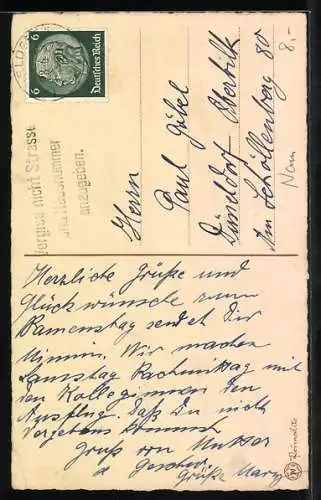 6 Deutsches Reich 6
Vergiss nicht Strasse
und Hausnummer
anzugeben.
Herrn
Paul Göbel
Düsseldorf Oberbilk
Am Schüllenberg 80
8.-
Herzliche Grüße und
Glückwünsche zum
Namenstag sendet Dir
Minnin. Wir machen
Samstag Nachmittag mit
den Kolleginnen den
Ausflug. Daß Du nicht
vergebens kommst
Gruß von Mutter
u Geschw.
Grüße Mary